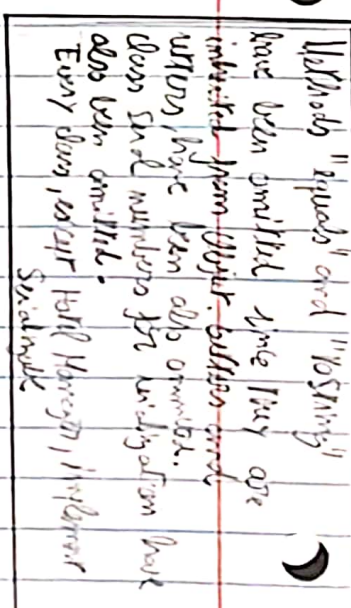 Methods "equals" and "toString"
have been omitted since they are
inherited from Object. Getters and
setters, have been also ommited.
class serial numbers for serialization have
also been omitted.
Every class, except Hotel Manager, implement
Serializable